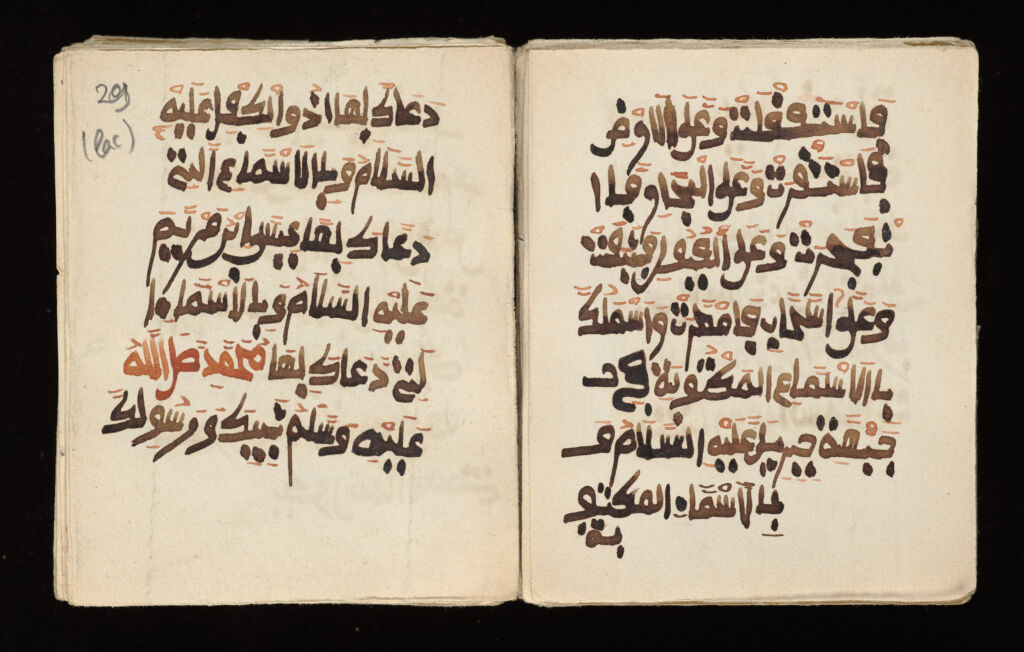 فاستقلت وعلى الارض
فاستقرت وعلى البحار فا ا
نفجرت وعلى العيون فنبعت
وعلى السحاب فامطرت واسئلك
بالاسماء المكتوبة في
جبهة جبريل عليه السلام و
بالاسماء المكتو
بة
209
دعاك بها ذوالكفل عليه
السلام وبالاسماء التي
دعاك بها عيسى ابن مريم
عليه السلام وبالاسماء ا
لتي دعاك بها محمد صل الله
عليه وسلم نبيك ورسولك